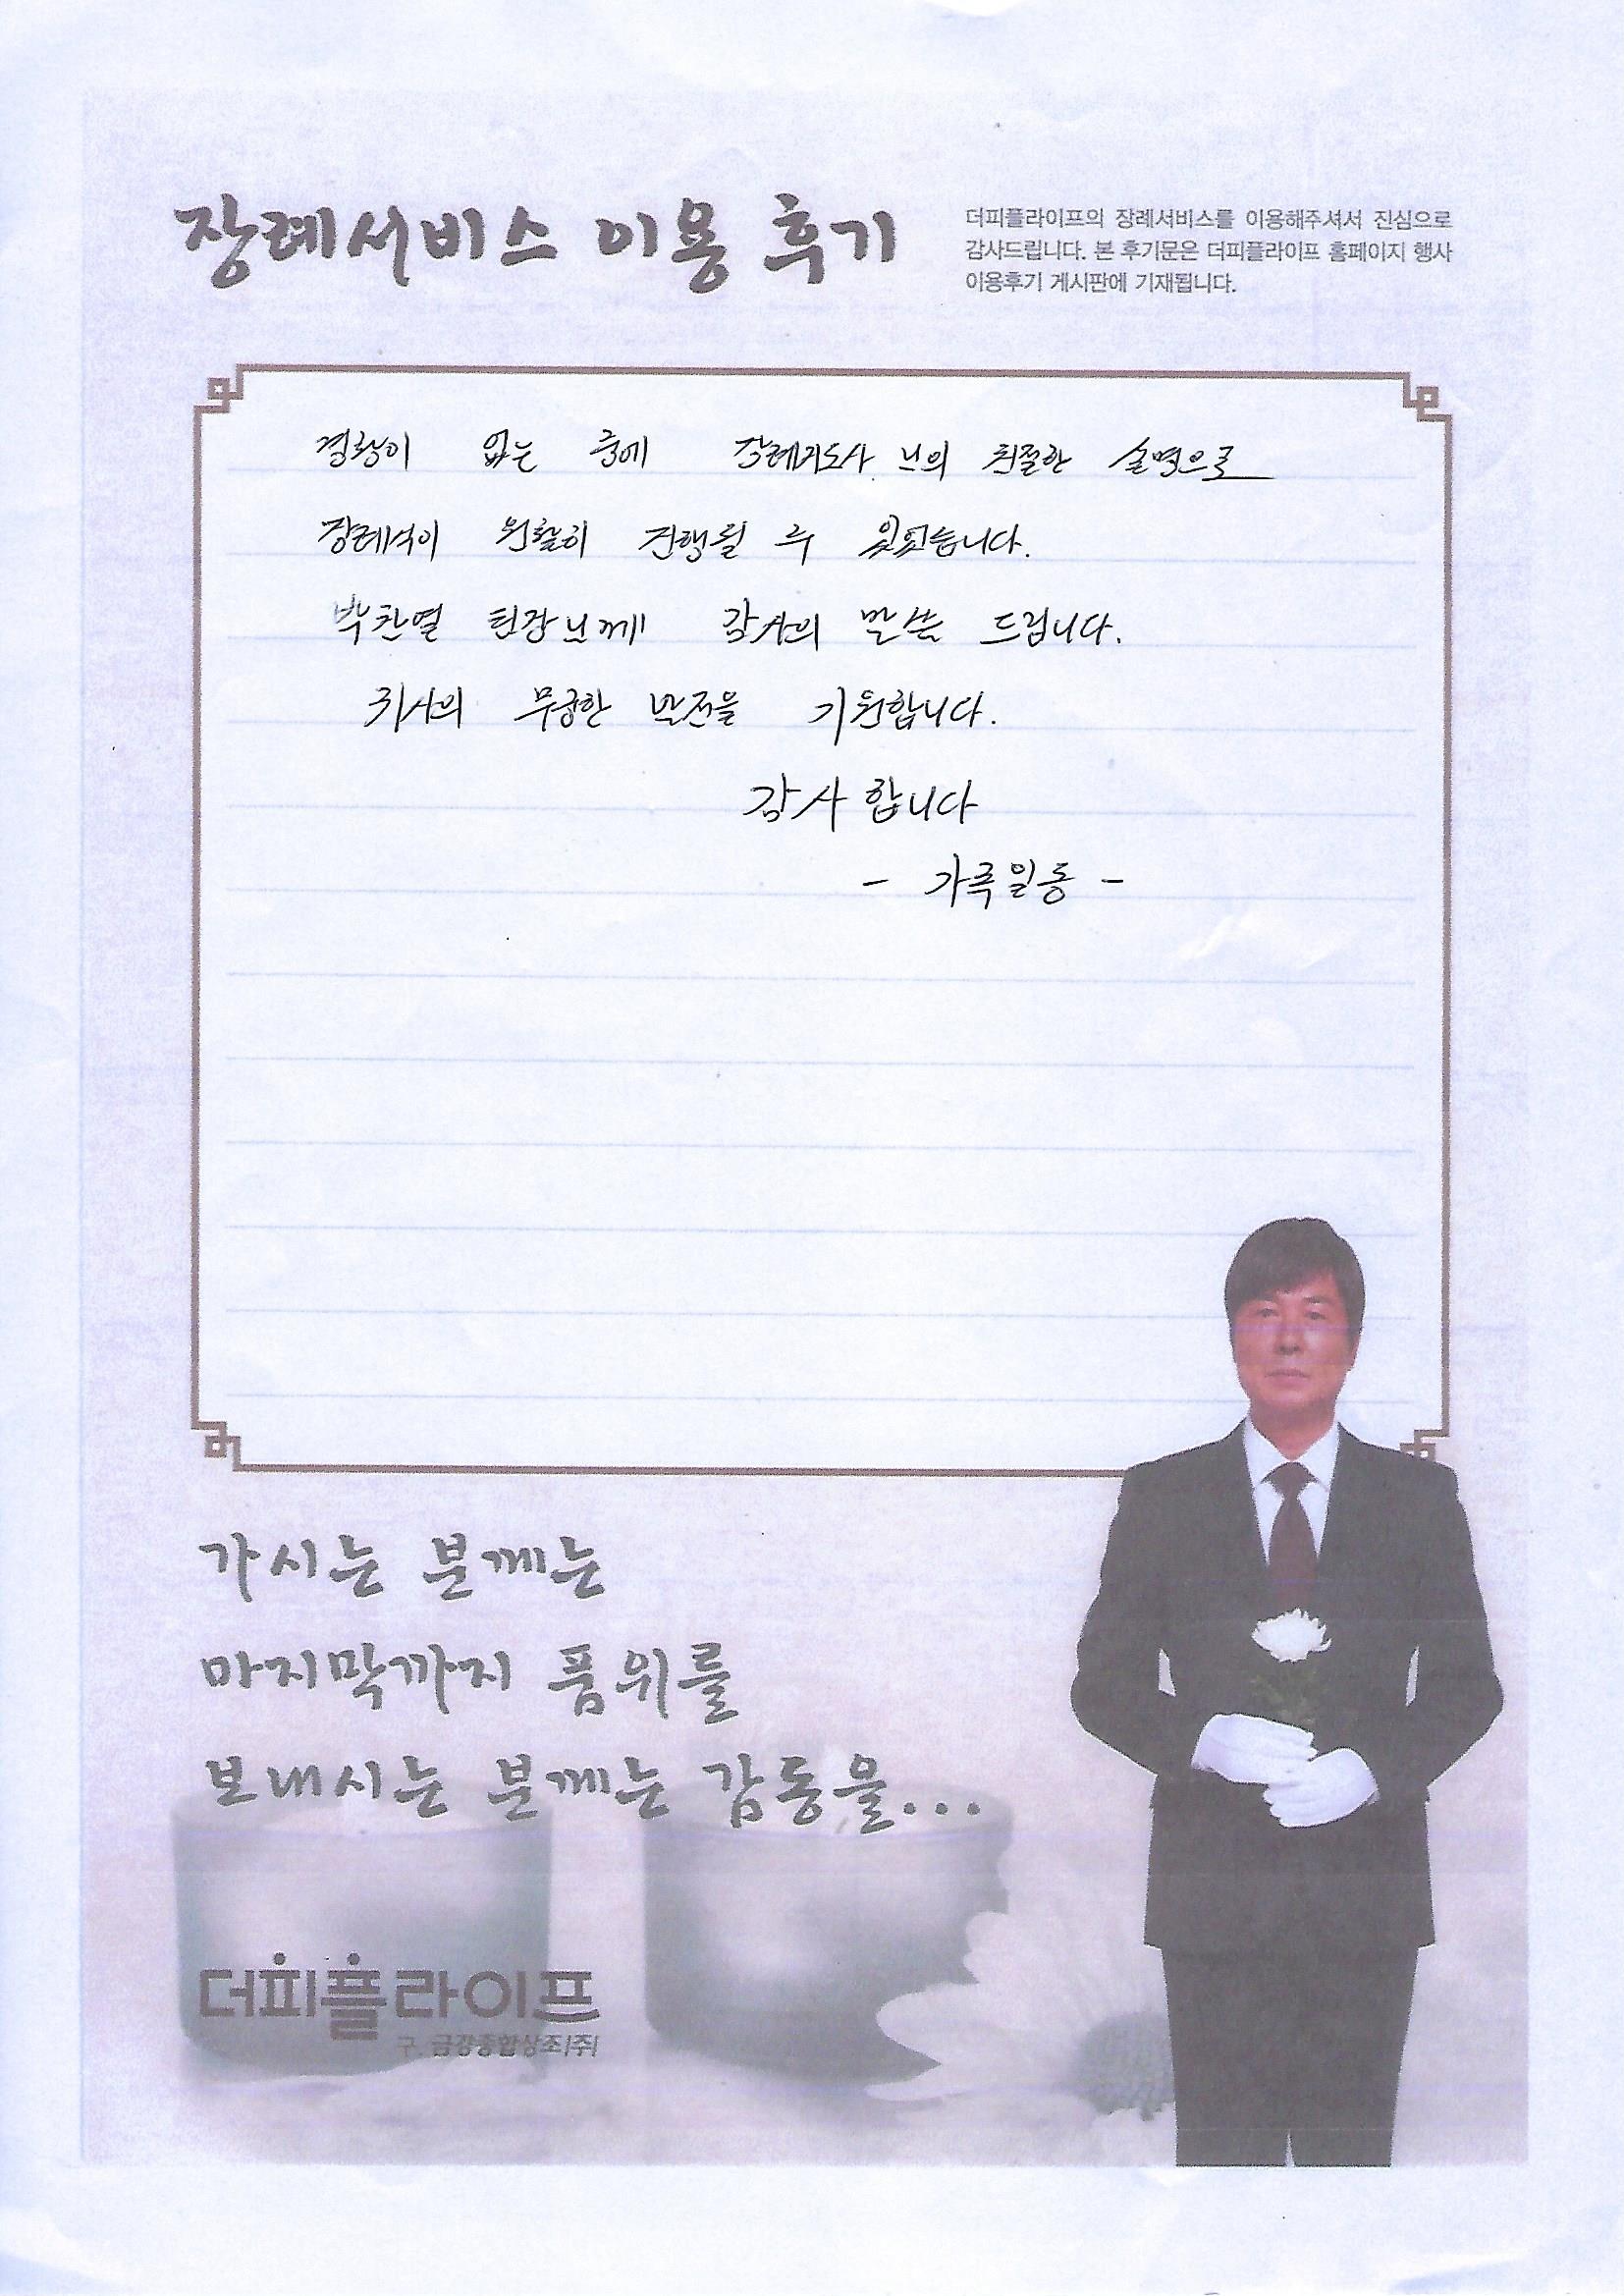 장례서비스 이용 후기
더피플라이프의 장례서비스를 이용해주셔서 진심으로
감사드립니다. 본 후기문은 더피플라이프 홈페이지 행사
이용후기 게시판에 기재됩니다.
경황이 없는 중에 장례지도사님의 친절한 설명으로
장례식이 원활히 진행될 수 있었습니다.
박찬열 팀장님께 감사의 말씀 드립니다.
귀사의 무궁한 발전을 기원합니다.
감사합니다
- 가족일동 -
가시는 분께는
마지막까지 품위를
보내시는 분께는 감동을...
더피플라이프
구. 금강종합상조(주)